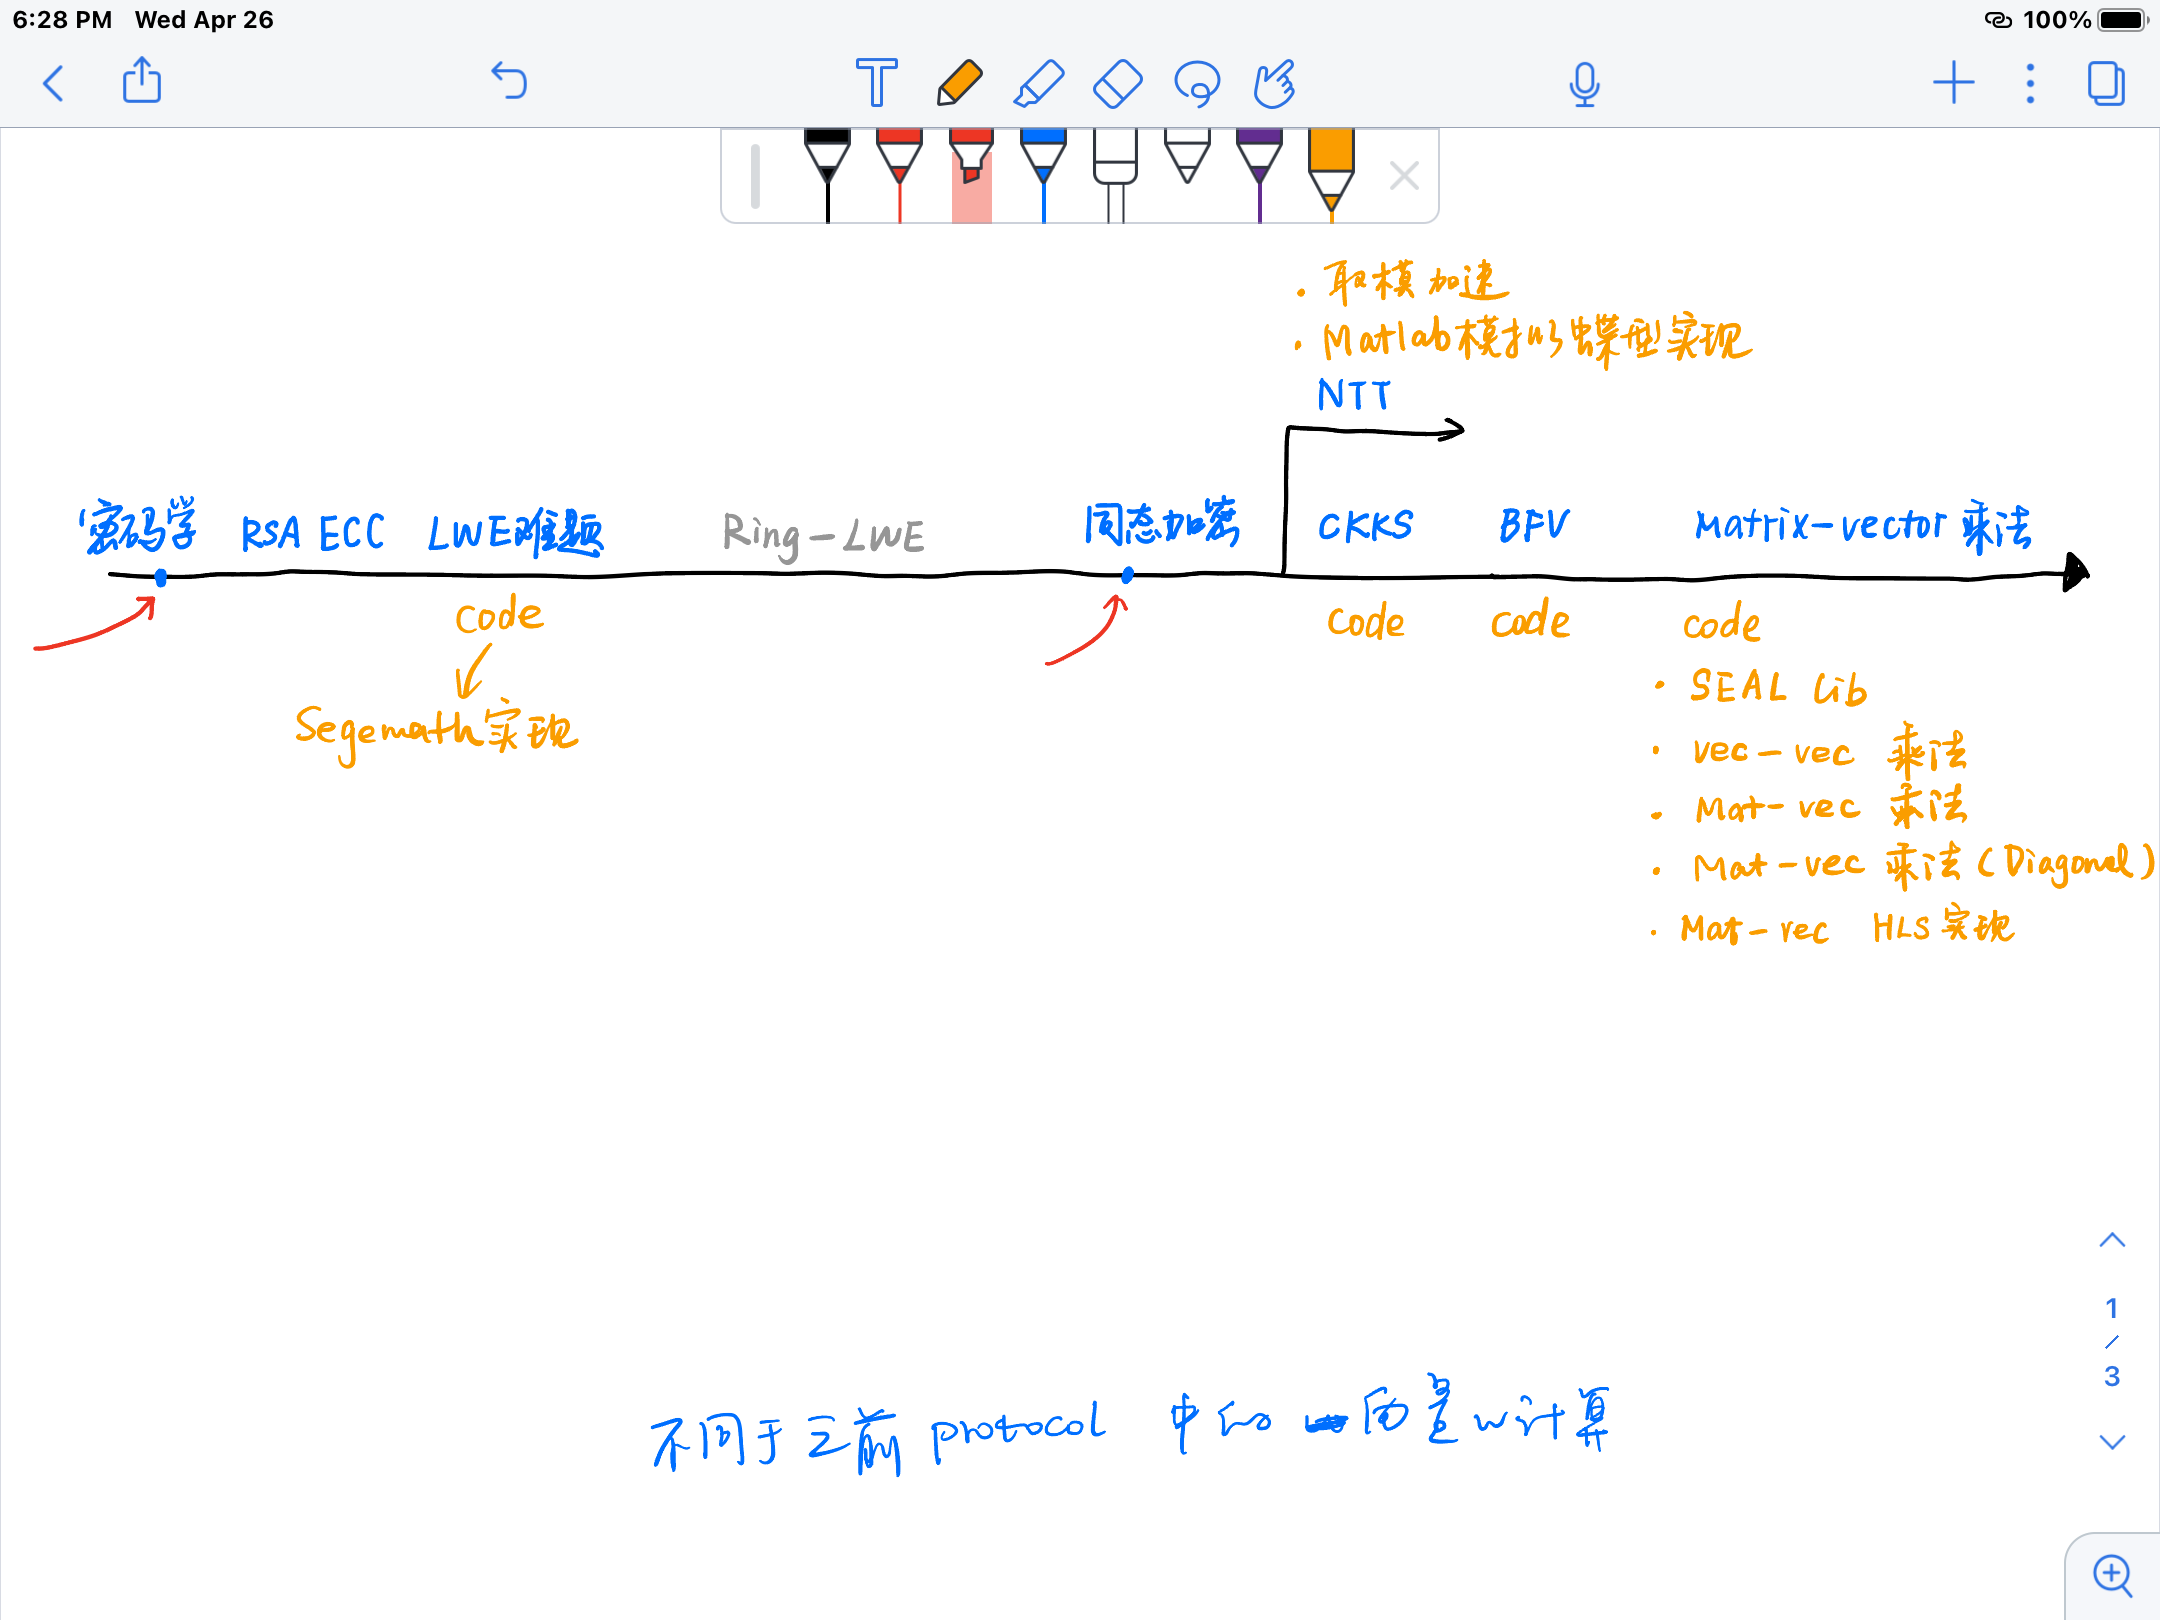 6:28 PM Wed Apr 26
100%
· 取模加速
· Matlab模拟蝶型实现
NTT
密码学 RSA ECC LWE难题 Ring-LWE 同态加密 CKKS BFV Matrix-vector 乘法
code code code code
Segemath实现
· SEAL Lib
· vec-vec 乘法
· Mat-vec 乘法
· Mat-vec 乘法 (Diagonal)
· Mat-vec HLS实现
1
/
3
不同于之前 protocol 中的 向量w计算